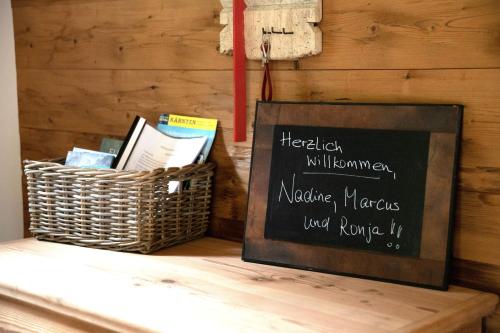 KÄRNTEN
Herzlich
Willkommen,
Nadine, Marcus
und Ronja !!